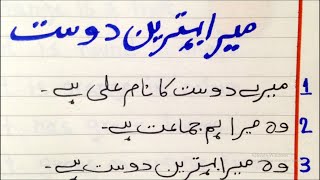 میرا بہترین دوست
1 میرے دوست کا نام علی ہے۔
2 وہ میرا ہم جماعت ہے۔
3 وہ میرا بہترین دوست ہے۔